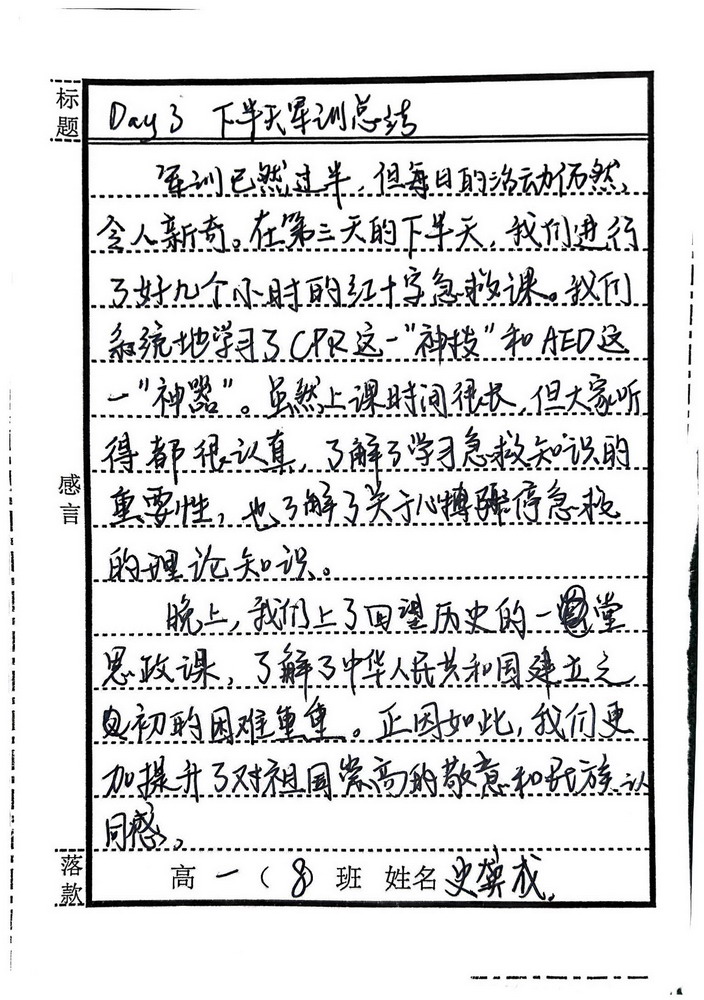 标题
Day 3 下半天军训总结
军训已然过半,但每日的活动仍然
令人新奇。在第三天的下半天,我们进行
了好几个小时的红十字急救课。我们
系统地学习了CPR这一"神技"和AED这
一"神器"。虽然上课时间很长,但大家听
得都很认真,了解了学习急救知识的
重要性,也了解了关于心搏骤停急救
的理论知识。
感言
晚上,我们上了回望历史的一堂
思政课,了解了中华人民共和国建立之
初的困难重重。正因如此,我们更
加提升了对祖国崇高的敬意和民族认
同感。
落款
高一(8)班 姓名 史龚成